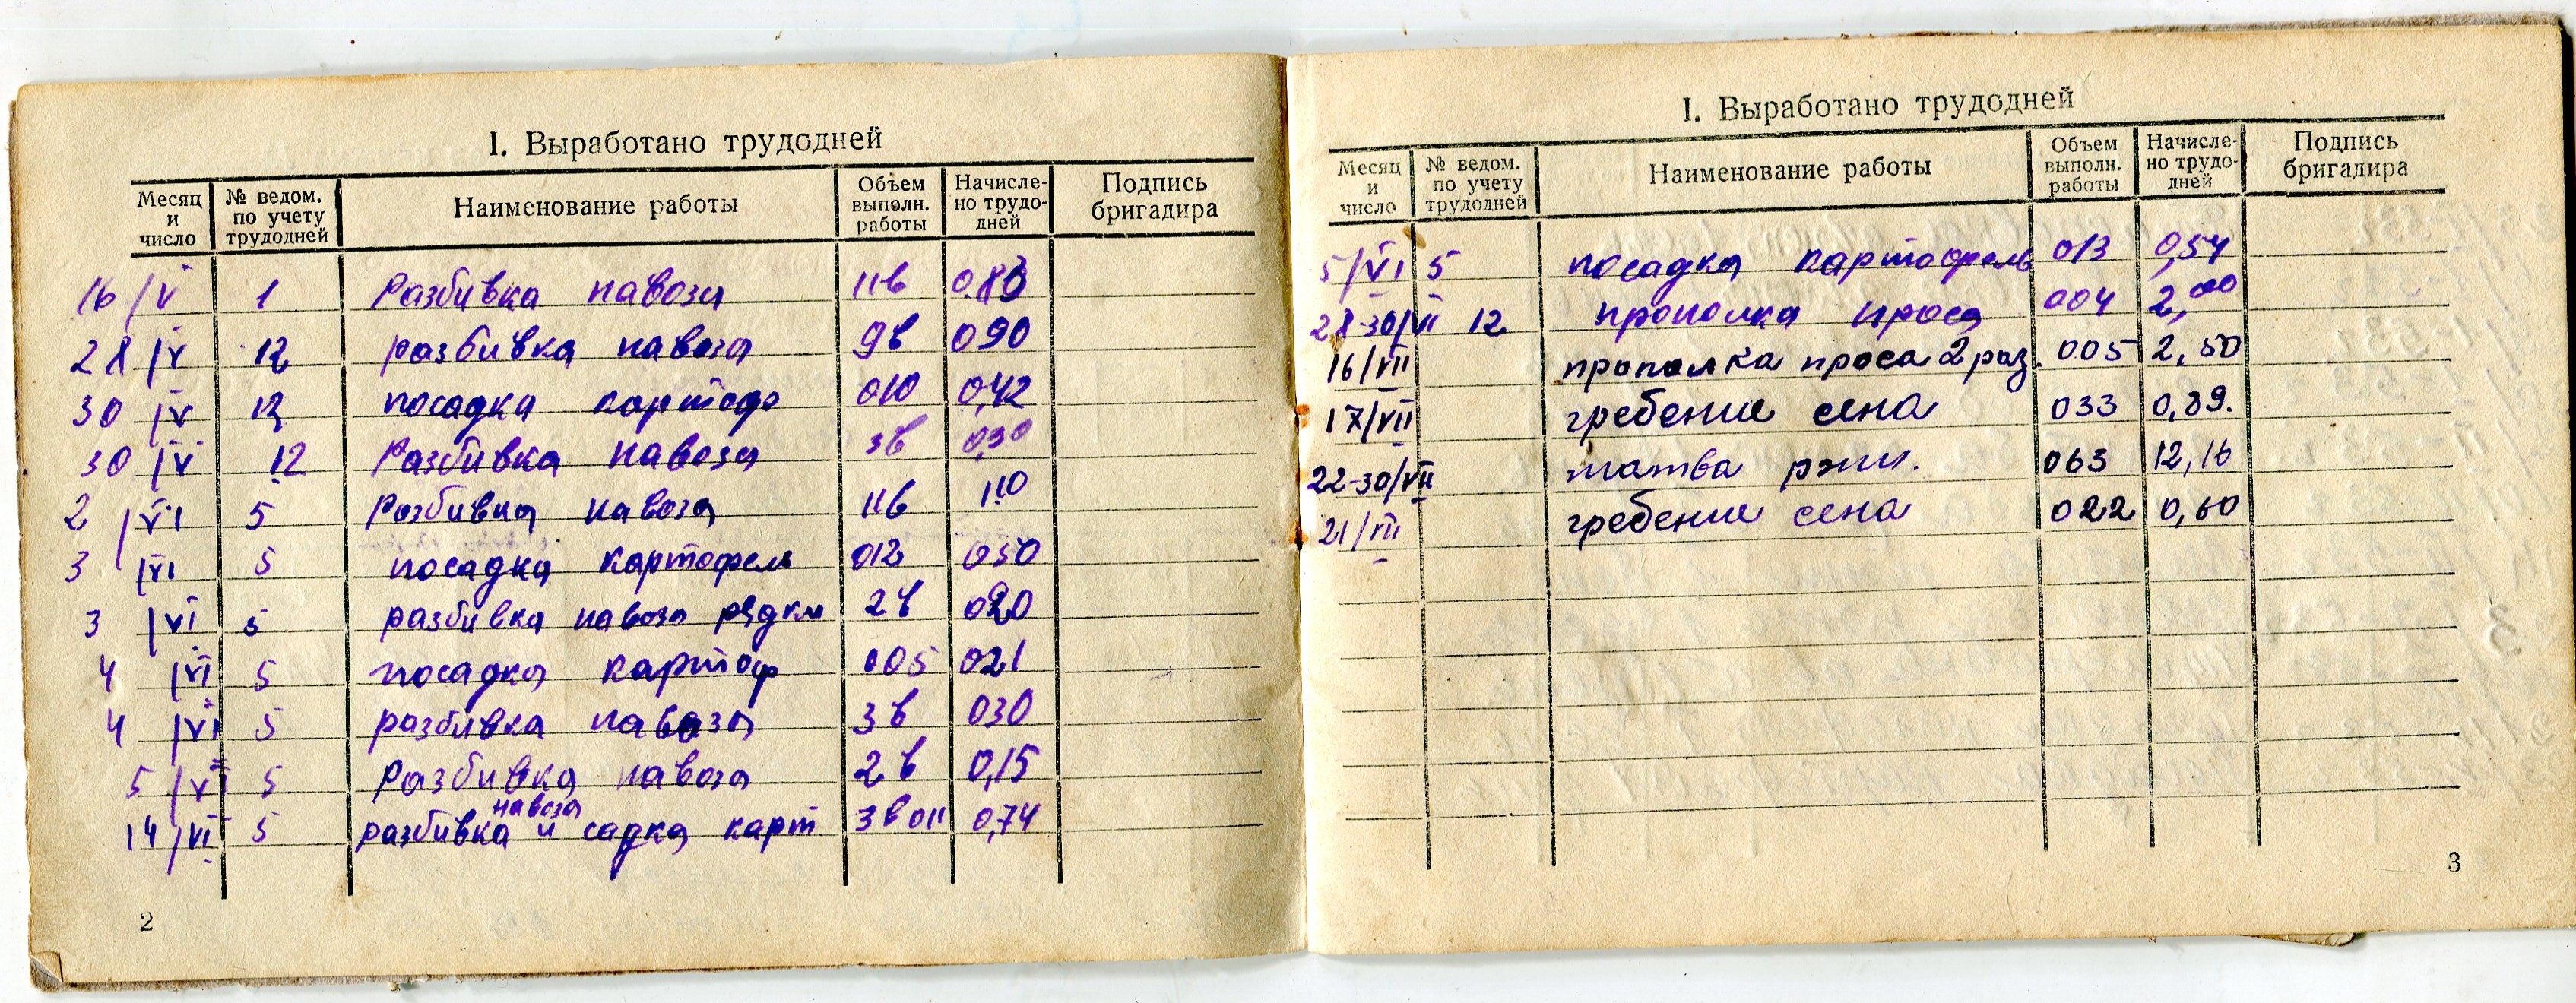 I. Выработано трудодней
Месяц и число № ведом. по учету трудодней Наименование работы Объем выполн. работы Начислено трудодней Подпись бригадира
16/V 1 Разбивка навоза 11в
28/V 12 разбивка навоза 9в 090
30/V 12 посадка картоф 010 0,42
30/V 12 Разбивка навоза 3в 0,30
2/VI 5 Разбивка навоза 11в 1,10
3/VI 5 посадка картофель 012 050
3/VI 5 разбивка навоза 2в 020
4/VI 5 посадка картоф 005 021
4/VI 5 разбивка навоза 3в 030
5/VI 5 Разбивка навоза 2в 0,15
навоза
14/VI 5 разбивка и садка карт 3в 011 0,74
2
I. Выработано трудодней
Месяц и число № ведом. по учету трудодней Наименование работы Объем выполн. работы Начислено трудодней Подпись бригадира
5/VI 5 посадка картофель 013 0,54
28-30/VI 12 прополка проса 004 2,00
16/VII прополка проса 2 раз. 005 2,50
17/VII гребение сена 033 0,89.
22-30/VII жатва ржи. 063 12,16
21/VII гребение сена 022 0,60
3